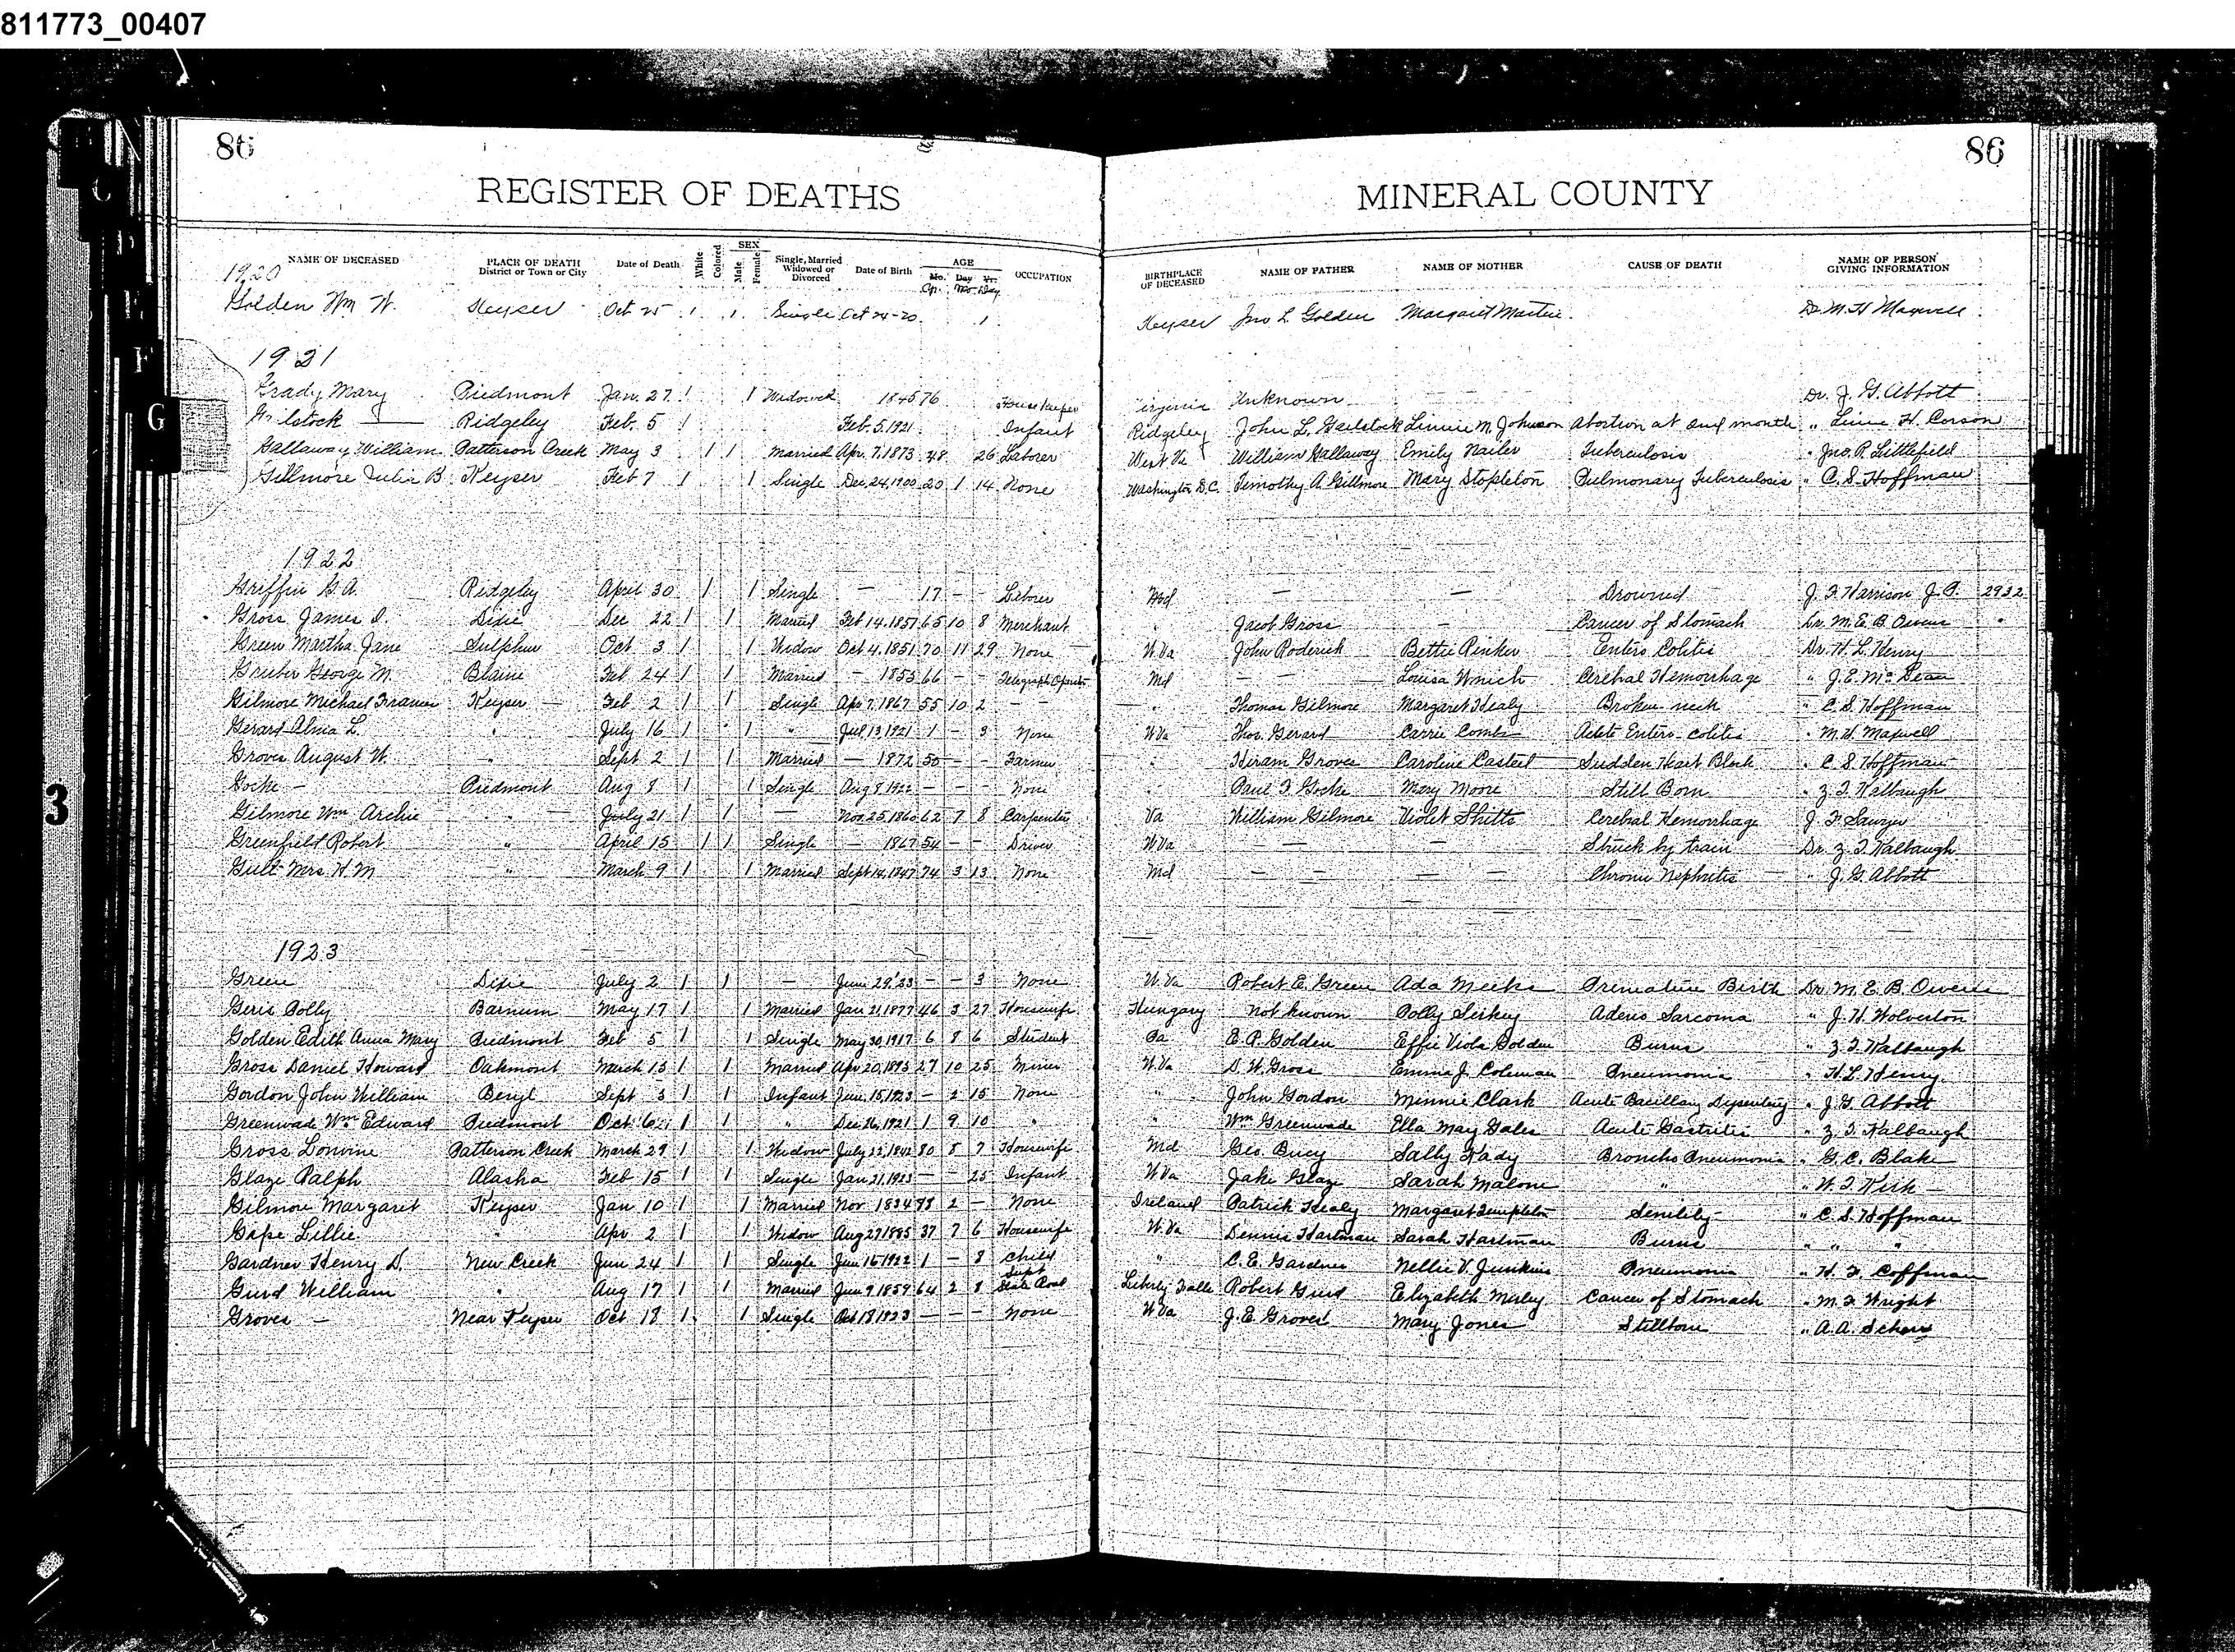 811773_00407
86 86
REGISTER OF DEATHS MINERAL COUNTY
NAME OF DECEASED PLACE OF DEATH District or Town or City Date of Death White Colored SEX Male Female Single, Married Widowed or Divorced Date of Birth AGE Mo. Day Yr. OCCUPATION BIRTHPLACE OF DECEASED NAME OF FATHER NAME OF MOTHER CAUSE OF DEATH NAME OF PERSON GIVING INFORMATION
1920
Golden Wm W. Keyser Oct 25 1 1 Single Oct 24-20 1 Keyser Jno L. Golden Margaret Martin Dr. M. H Maxwell
1921
Grady Mary Piedmont Jan. 27 1 1 Widowed 1845 76 House Keeper Virginia Unknown Dr. J. G. Abbott
Ridgeley Feb. 5 1 Feb. 5, 1921 Infant Ridgeley John L. Gailstock Linnie M. Johnson Abortion at 2nd month " H. Corson
Gallaway William Patterson Creek May 3 1 1 Married Apr. 7, 1873 48 26 Laborer West Va William Gallaway Emily Nailer Tuberculosis " Jno. R. Littlefield
Gillmore Julia B Keyser Feb 7 1 1 Single Dec. 24, 1900 20 1 14 None Washington D.C. Timothy A. Gillmore Mary Stopleton Pulmonary Tuberculosis " C. S. Hoffman
1922
Griffin G. A. Ridgeley April 30 1 1 Single — 17 - - Laborer Md — — Drowned J. F. Harrison J. P. 2932
Gross James D. Dixie Dec 22 1 1 Married Feb 14, 1857 65 10 8 Merchant " Jacob Gross — Cancer of Stomach Dr. M. E. B. Owens "
Green Martha Jane Sulphur Oct 3 1 1 Widow Oct 4, 1851 70 11 29 None W.Va John Roderick Bettie Rinker Entero Colitis Dr. H. L. Henry
Gruber George M. Blaine Feb 24 1 1 Married — 1855 66 - - Telegraph Operator Md — — Louisa Cerebral Hemorrhage " J. E. McDean
Gilmore Michael Francis Keyser Feb. 2 1 1 Single Apr 7, 1867 55 10 2 - - " Thomas Gilmore Margaret Healy Broken neck " C. S. Hoffman
Gerard Alma L. " July 16 1 1 " Jul 13 1921 1 - 3 None W.Va Thos. Gerard Carrie Combs Acute Entero-colitis " M. H. Maxwell
Groves August W. " Sept 2 1 1 Married — 1872 50 - - Farmer " Hiram Groves Caroline Casteel Sudden Hart Block " C. S. Hoffman
Gocke — Piedmont Aug 8 1 1 Single Aug 8 1922 - - - None " Paul F. Gocke Mary Moore Still Born " Z. T. Kalbaugh
Gilmore Wm Archie " July 21 1 1 — Nov. 25, 1860 62 7 8 Carpenter Va William Gilmore Violet Shitts Cerebral Hemorrhage J. F. Sawyer
Greenfield Robert " April 15 1 1 Single — 1867 54 - - Driver W.Va — — Struck by train Dr. Z. T. Kalbaugh
Gult Mrs. H M " March 9 1 1 Married Sept 14, 1847 74 3 13 None Md — — Chronic Nephritis " J. G. Abbott
1923
Green Dixie July 2 1 1 — June 29 '23 - - 3 None W.Va Robert E. Green Ada Meeks Premature Birth Dr. M. E. B. Owens
Geris Polly Barnum May 17 1 1 Married Jan 21, 1877 46 3 27 Housewife Hungary not known Polly Serkey Adeno Sarcoma " J. H. Wolverton
Golden Edith Anna Mary Piedmont Feb 5 1 1 Single May 30, 1917 6 8 6 Student Pa E. P. Golden Effie Viola Golden Burns " Z. T. Kalbaugh
Gross Daniel Howard Oakmont March 15 1 1 Married Apr 20, 1895 27 10 25 Miner W.Va D. W. Gross Emma J. Coleman Pneumonia " H. L. Henry
Gordon John William Beryl Sept 3 1 1 Infant June 15, 1923 - 2 15 None " John Gordon Minnie Clark Acute Bacillary Dysentery " J. G. Abbott
Greenwade Wm Edward Piedmont Oct 6 1 1 " Dec 26, 1921 1 9 10 " " Wm Greenwade Ella May Gales Acute Gastritis " Z. T. Kalbaugh
Gross Lonvine Patterson Creek March 29 1 1 Widow July 22, 1842 80 8 7 Housewife Md Geo. Bucy Sally Kady Broncho Pneumonia " G. C. Blake
Glaze Ralph Alaska Feb 15 1 1 Single Jan 21, 1923 — 25 Infant W.Va Jake Glaze Sarah Malone " " W. T. Kirk
Gilmore Margaret Keyser Jan 10 1 1 Married Nov 1834 88 2 - None Ireland Patrick Healy Margaret Templeton Senility " C. S. Hoffman
Gape Lillie " Apr 2 1 1 Widow Aug 27 1885 37 7 6 Housewife W.Va Dennis Hartman Sarah Hartman Burns " " "
Gardner Henry D. New Creek Jun 24 1 1 Single Jun 16 1922 1 - 8 Child " C. E. Gardner Nellie V. Junkins Pneumonia " H. F. Coffman
Gurd William " Aug 17 1 1 Married Jun 9 1859 64 2 8 Supt Coal Robert Gurd Elizabeth Cancer of Stomach " M. F. Wright
Groves — Near Keyser Oct 18 1 1 Single Oct 18 1923 - - - None W.Va J. E. Groves Mary Jones Stillborn " A. A. Scherr
G
3